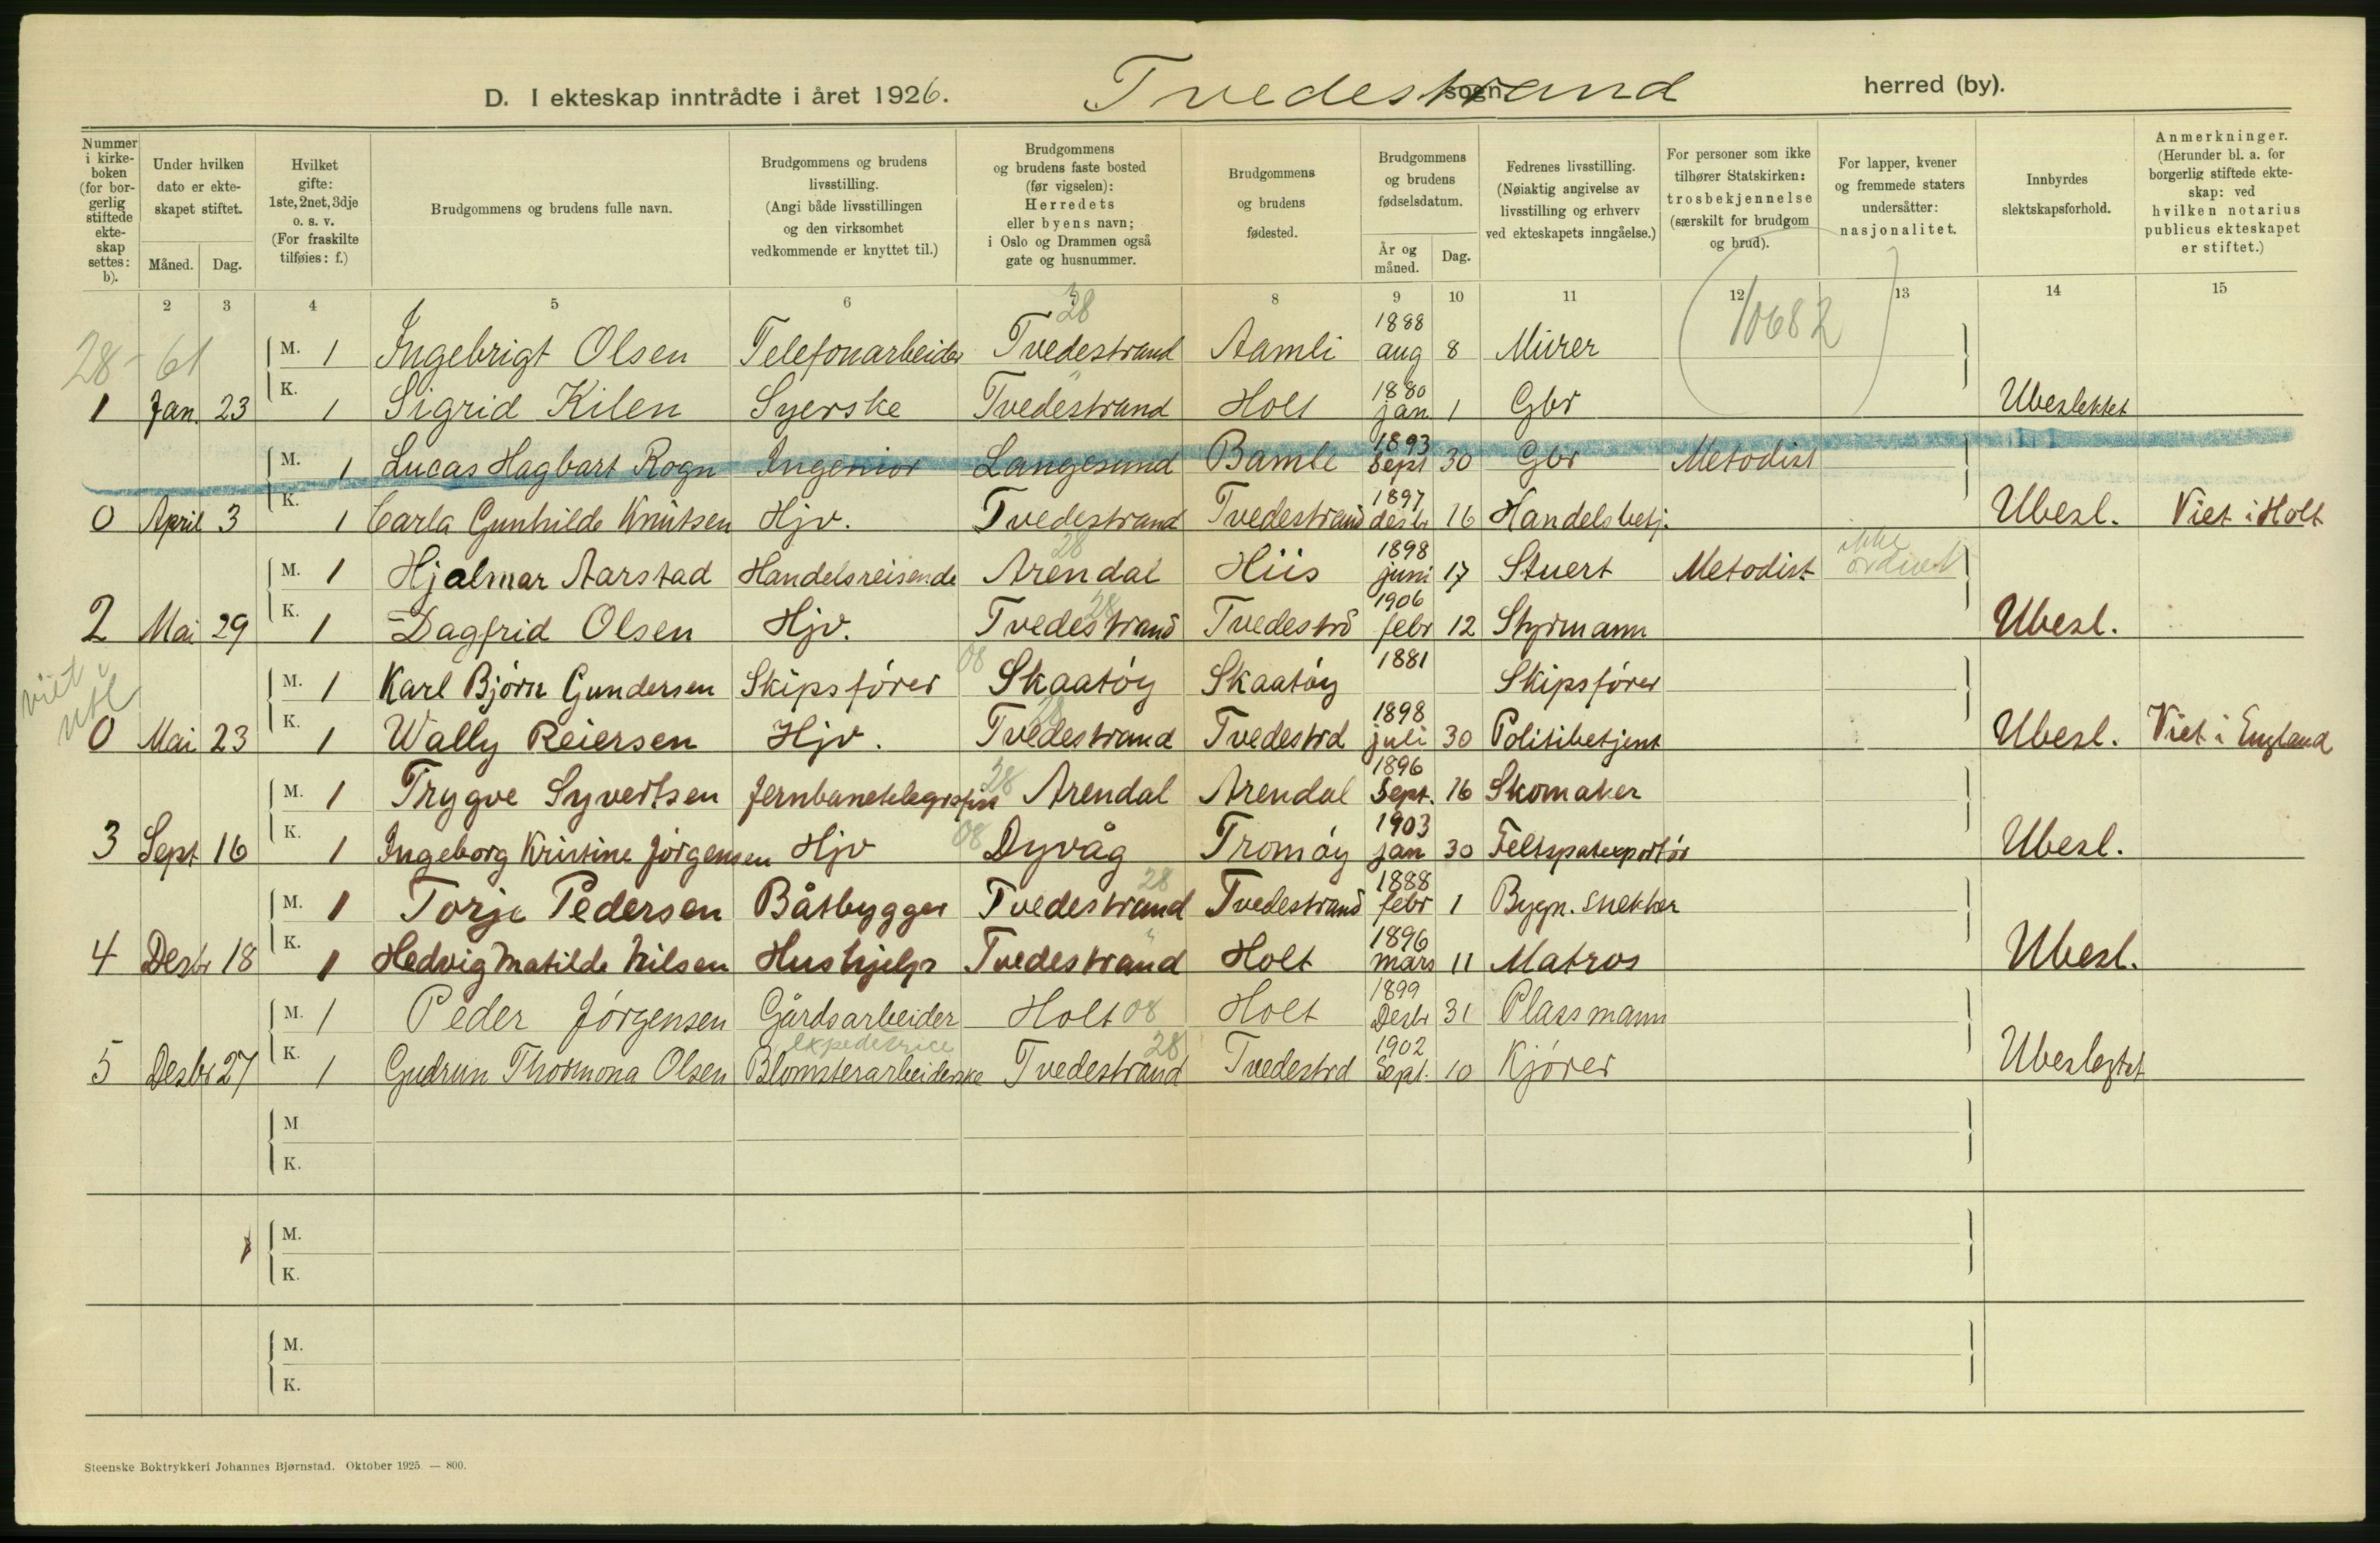 D. I ekteskap inntrådte i året 1926. Tvedestrand sogn herred (by).
Nummer i kirkeboken (for borgerlig stiftede ekteskap settes: b).
Under hvilken dato er ekteskapet stiftet.
Måned. Dag.
Hvilket gifte: 1ste, 2net, 3dje o. s. v. (For fraskilte tilføies: f.)
Brudgommens og brudens fulle navn.
Brudgommens og brudens livsstilling. (Angi både livsstillingen og den virksomhet vedkommende er knyttet til.)
Brudgommens og brudens faste bosted (før vigselen): Herredets eller byens navn; i Oslo og Drammen også gate og husnummer.
Brudgommens og brudens fødested.
Brudgommens og brudens fødselsdatum.
År og måned. Dag.
Fedrenes livsstilling. (Nøiaktig angivelse av livsstilling og erhverv ved ekteskapets inngåelse.)
For personer som ikke tilhører Statskirken: trosbekjennelse (særskilt for brudgom og brud).
For lapper, kvener og fremmede staters undersåtter: nasjonalitet.
Innbyrdes slektskapsforhold.
Anmerkninger. (Herunder bl. a. for borgerlig stiftede ekteskap: ved hvilken notarius publicus ekteskapet er stiftet.)
2 3 4 5 6 8 9 10 11 12 13 14 15
28 - 61 28 10682
M. 1 Ingebrigt Olsen Telefonarbeider Tvedestrand Aamli 1888 aug 8 Murer
1 Jan. 23 K. 1 Sigrid Kilen Syerske Tvedestrand Holt 1880 jan. 1 Gbr Ubeslektet
M. 1 Lucas Hagbart Rogn Ingeniør Langesund Bamle 1893 Sept 30 Gbr Metodist
0 April 3 K. 1 Carla Gunhilde Knutsen Hjv. Tvedestrand Tvedestrand 1897 desbr 16 Handelsbetj. Ubesl. Viet i Holt
M. 1 Hjalmar Aarstad Handelsreisende 28 Arendal Hiis 1898 juni 17 Stuert Metodist ikke
2 Mai 29 K. 1 Dagfrid Olsen Hjv. 28 Tvedestrand Tvedestrd 1906 febr 12 Styrmann Ubesl.
viet i utl
M. 1 Karl Bjørn Gundersen Skipsfører 08 Skaatøy Skaatøy 1881 Skipsfører
0 Mai 23 K. 1 Wally Reiersen Hjv. 28 Tvedestrand Tvedestrd 1898 juli 30 Politibetjent Ubesl. Viet i England
M. 1 Trygve Syvertsen Jernbanetelegrafist 28 Arendal Arendal 1896 Sept. 16 Skomaker
3 Sept 16 K. 1 Ingeborg Kristine Jørgensen Hjv 08 Dyvåg Tromøy 1903 jan 30 Feltspateksportør Ubesl.
M. 1 Torje Pedersen Båtbygger 28 Tvedestrand Tvedestrand 1888 febr 1 Bygn. snekker
4 Desbr 18 K. 1 Hedvig Matilde Nilsen Hushjelp Tvedestrand Holt 1896 mars 11 Matros Ubesl.
M. 1 Peder Jørgensen Gårdsarbeider Holt 08 Holt 1899 Desbr 31 Plassmann
5 Desbr 27 K. 1 Gudrun Thormona Olsen expeditrice Blomsterarbeiderske 28 Tvedestrand Tvedestrd 1902 Sept. 10 Kjører Ubeslegtet
M
K.
M.
K.
M.
K.
Steenske Boktrykkeri Johannes Bjørnstad. Oktober 1925. — 800.